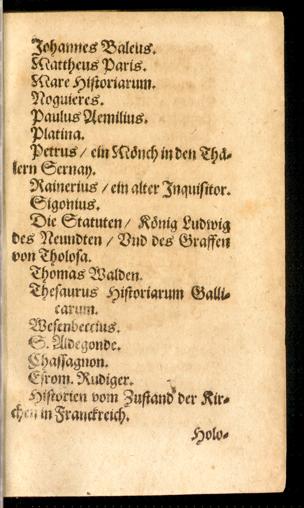 Johannes Baleus.
Mattheus Paris.
Mare Historiarum.
Noguieres.
Paulus Aemilius.
Platina.
Petrus / ein Mönch in den Thä-
lern Sernay.
Rainerius / ein alter Inquisitor.
Sigonius.
Die Statuten / König Ludwig
des Neundten / Vnd des Graffen
von Tholosa.
Thomas Walden.
Thesaurus Historiarum Galli-
carum.
Wesenbeccius.
S. Aldegonde.
Chassagnon.
Esrom. Rudiger.
Historien vom Zustand der Kir-
chen in Franckreich.
Holw-